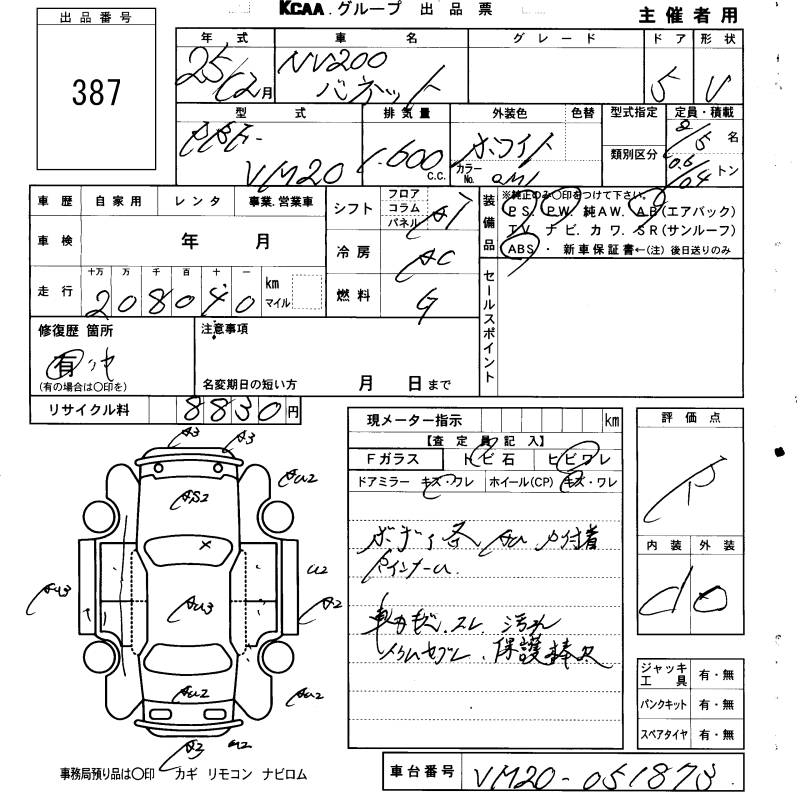 KCAA.グループ 出品票
主催者用
出品番号
387
年式 車名 グレード ドア 形状
25 12月 NV200 バネット 5 V
型式 排気量 外装色 色替 型式指定 定員・積載
VM20 1,600 C.C. ホワイト カラーNo. QM1 類別区分 2/5 名
0.6/0.4 トン
車歴 自家用 レンタ 事業.営業車
シフト フロア コラム パネル AT
装備品 ※純正のみ○印をつけて下さい。
PS. PW. 純AW. AB(エアバック)
TV. ナビ. カワ. SR(サンルーフ)
ABS ・ 新車保証書←(注) 後日送りのみ
車検 年 月
冷房 AC
走行 十万 万 千 百 十 一
208040 km マイル
燃料 G
セールスポイント
修復歴 箇所
有
(有の場合は○印を)
注意事項
名変期日の短い方 月 日まで
リサイクル料 8830円
現メーター指示 km
【査定員記入】
Fガラス トビ石 ヒビワレ
ドアミラー キズ・ワレ ホイール(CP) キズ・ワレ
ボディ各 AU 付着
スレ 汚れ
保護棒欠
評価点
内装 外装
d
A3 A3
AU2
AS2
X
U2
AU3 AU3 A2
AU2 AU2
A3 U2
ジャッキ工具 有・無
パンクキット 有・無
スペアタイヤ 有・無
事務局預り品は○印 カギ リモコン ナビロム
車台番号 VM20-051873